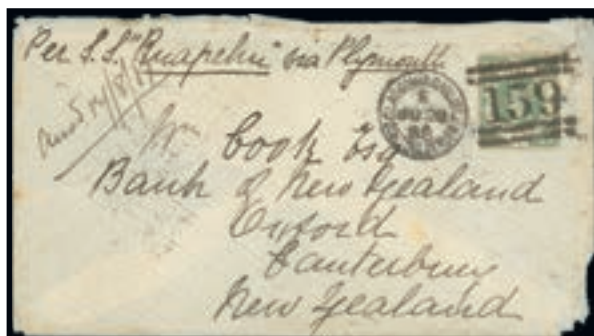 Per S.S. "Ruapehu" via Plymouth
159
Wm Cook Esq
Bank of New Zealand
Oxford
Canterbury
New Zealand